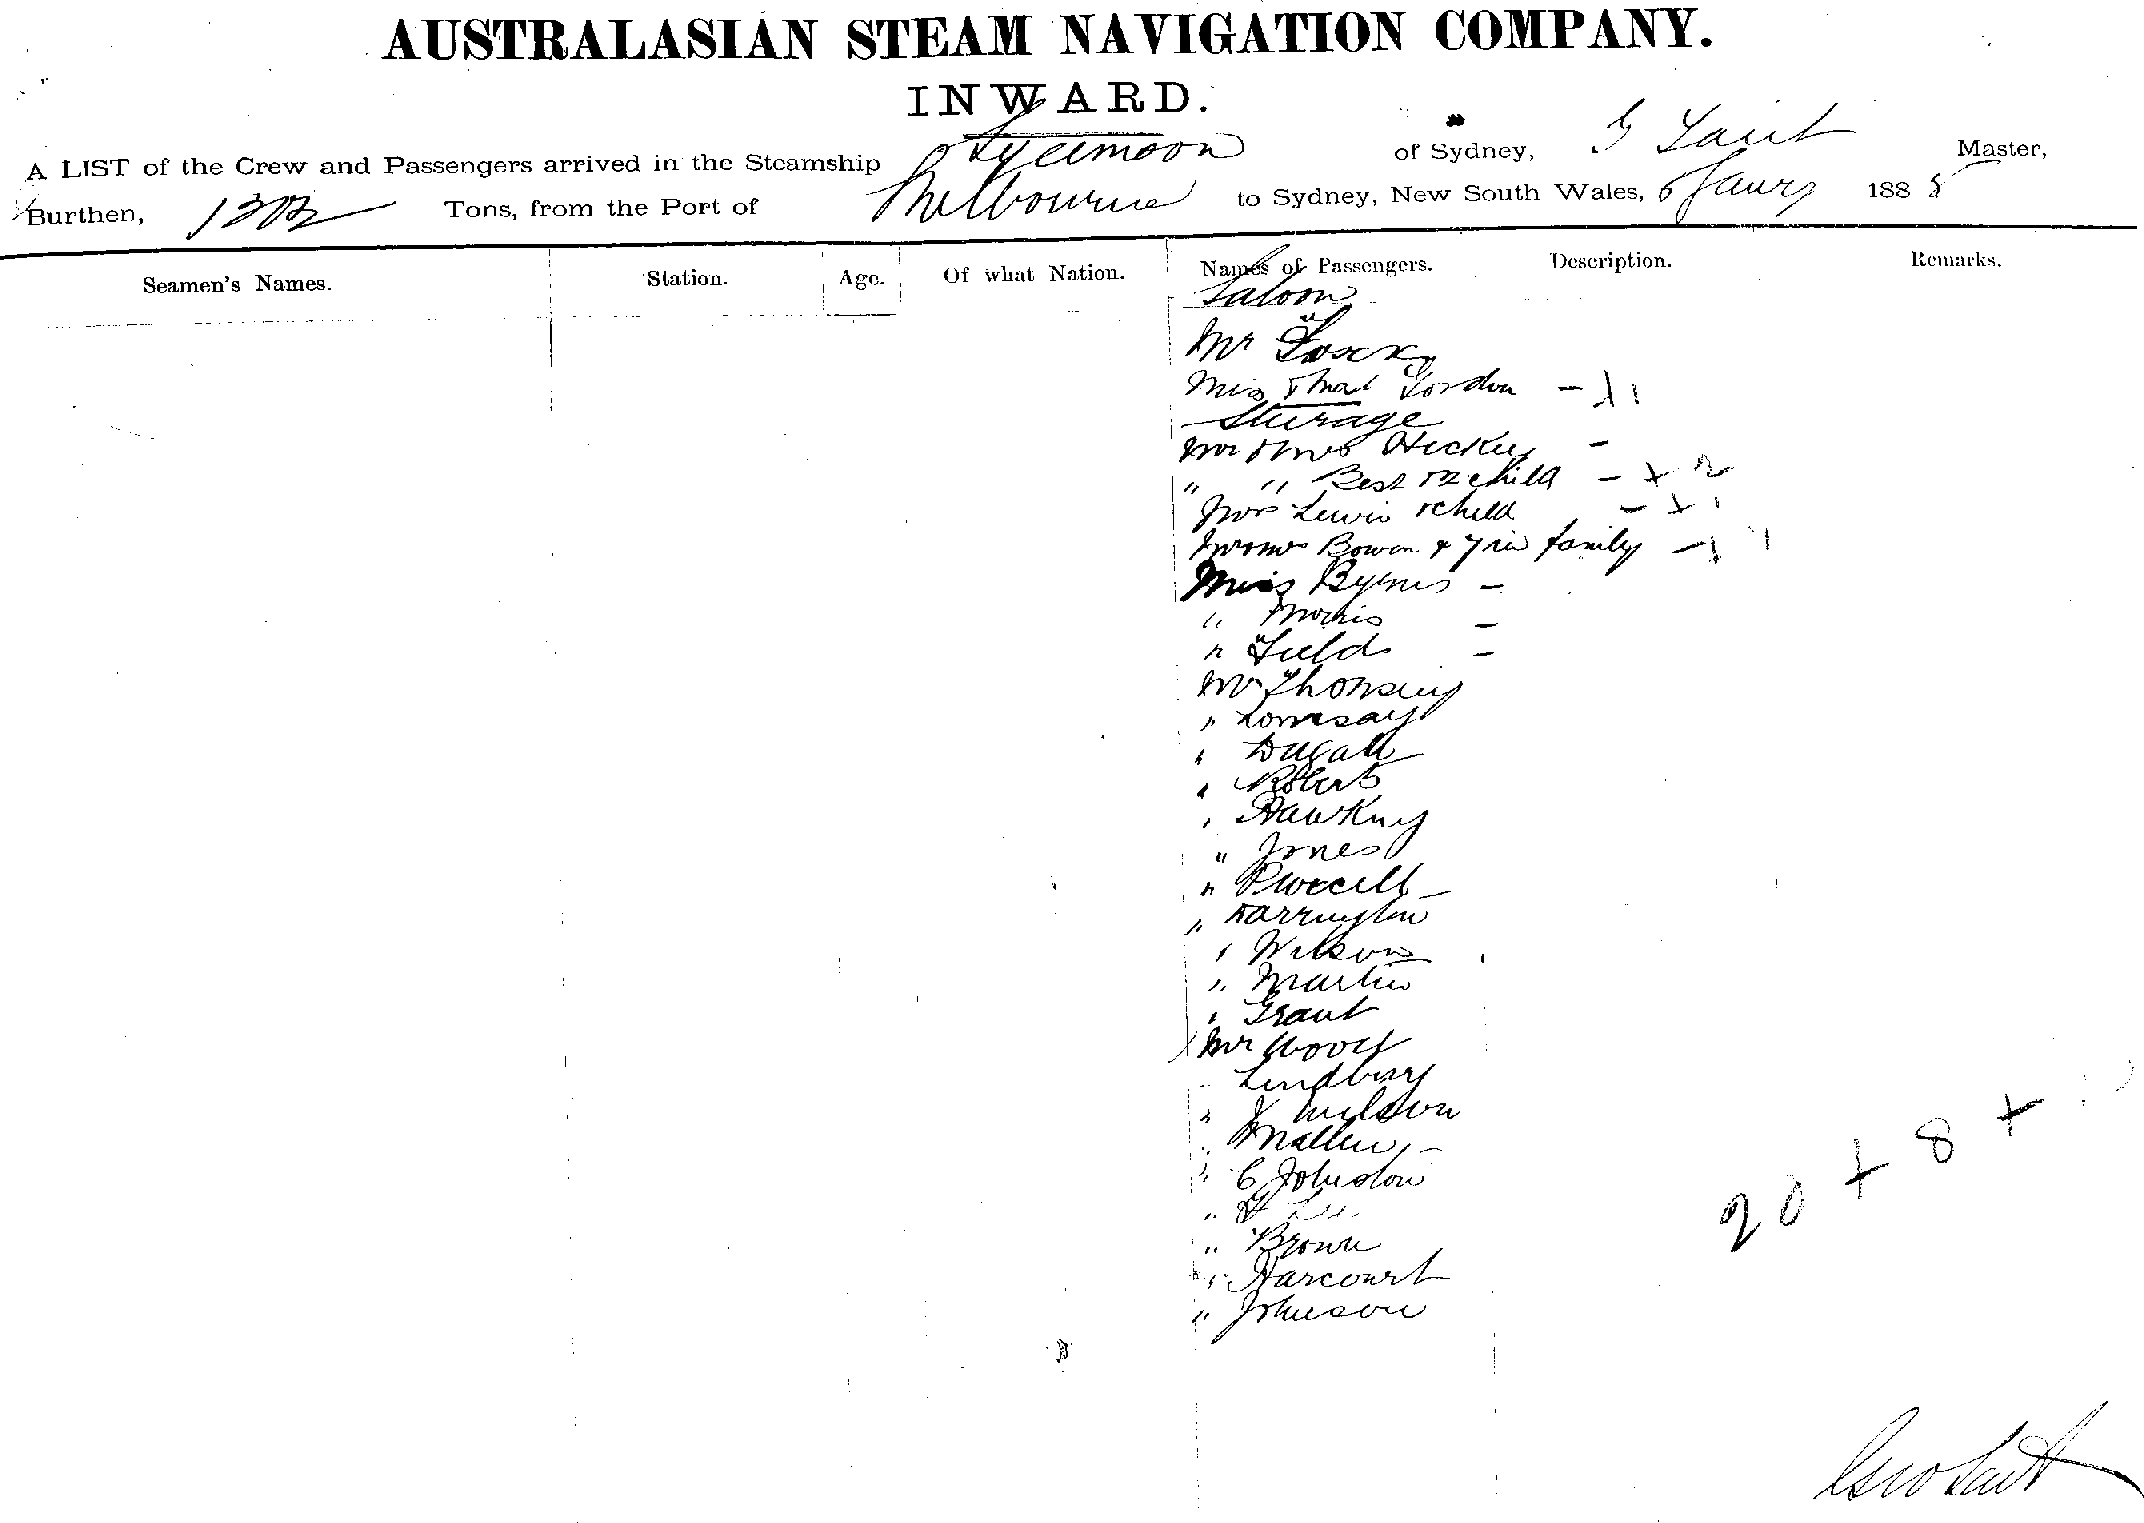 AUSTRALASIAN STEAM NAVIGATION COMPANY.
INWARD.
A LIST of the Crew and Passengers arrived in the Steamship Lyeemoon of Sydney, G Lait Master,
Burthen, Tons, from the Port of Melbourne to Sydney, New South Wales, 6 Jany 1885
Seamen's Names. Station. Age. Of what Nation. Names of Passengers. Description. Remarks.
Saloon
Mr
Miss & Mast Gordon - 11
Steerage
Mr & Mrs Hickey -
" " Best & 2 child - + 2
Mrs Lewis & child - + 1
Mr & Mrs Bowen & family
Miss Byrnes -
" Morris -
" Field -
Mr
"
" Dugall
" Roberts
" Hawking
" Jones
" Purcell -
" Farrington
" Wilson
" Martin
" Grant
Mr
" Lindbury
" Wilson
" Mallen -
" C Johnston
"
" Brown
" Harcourt
" Johnson
20 + 8 +
Geo Lait